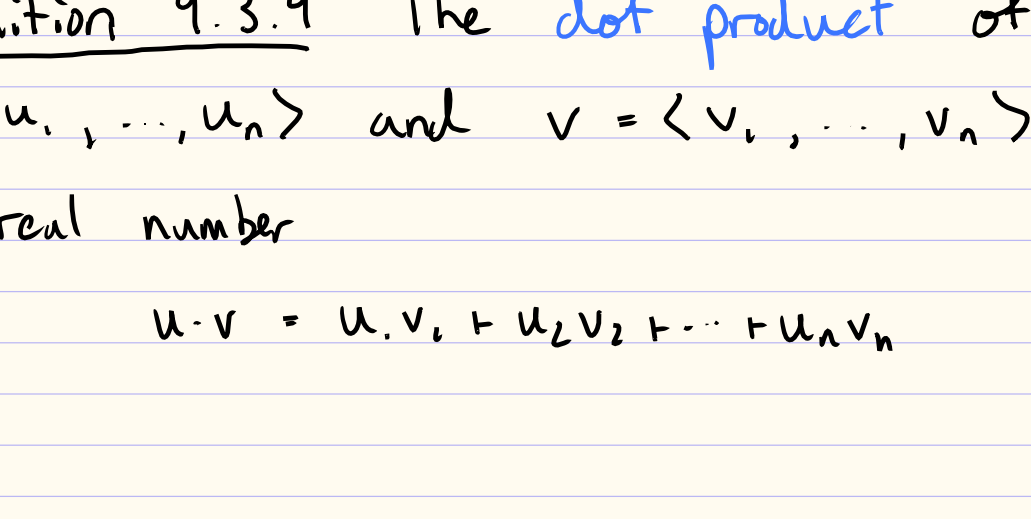 ition 9.3.9 The dot product of
u₁, ..., uₙ⟩ and v = ⟨v₁, ..., vₙ⟩
real number
u · v = u₁v₁ + u₂v₂ + ··· + uₙvₙ